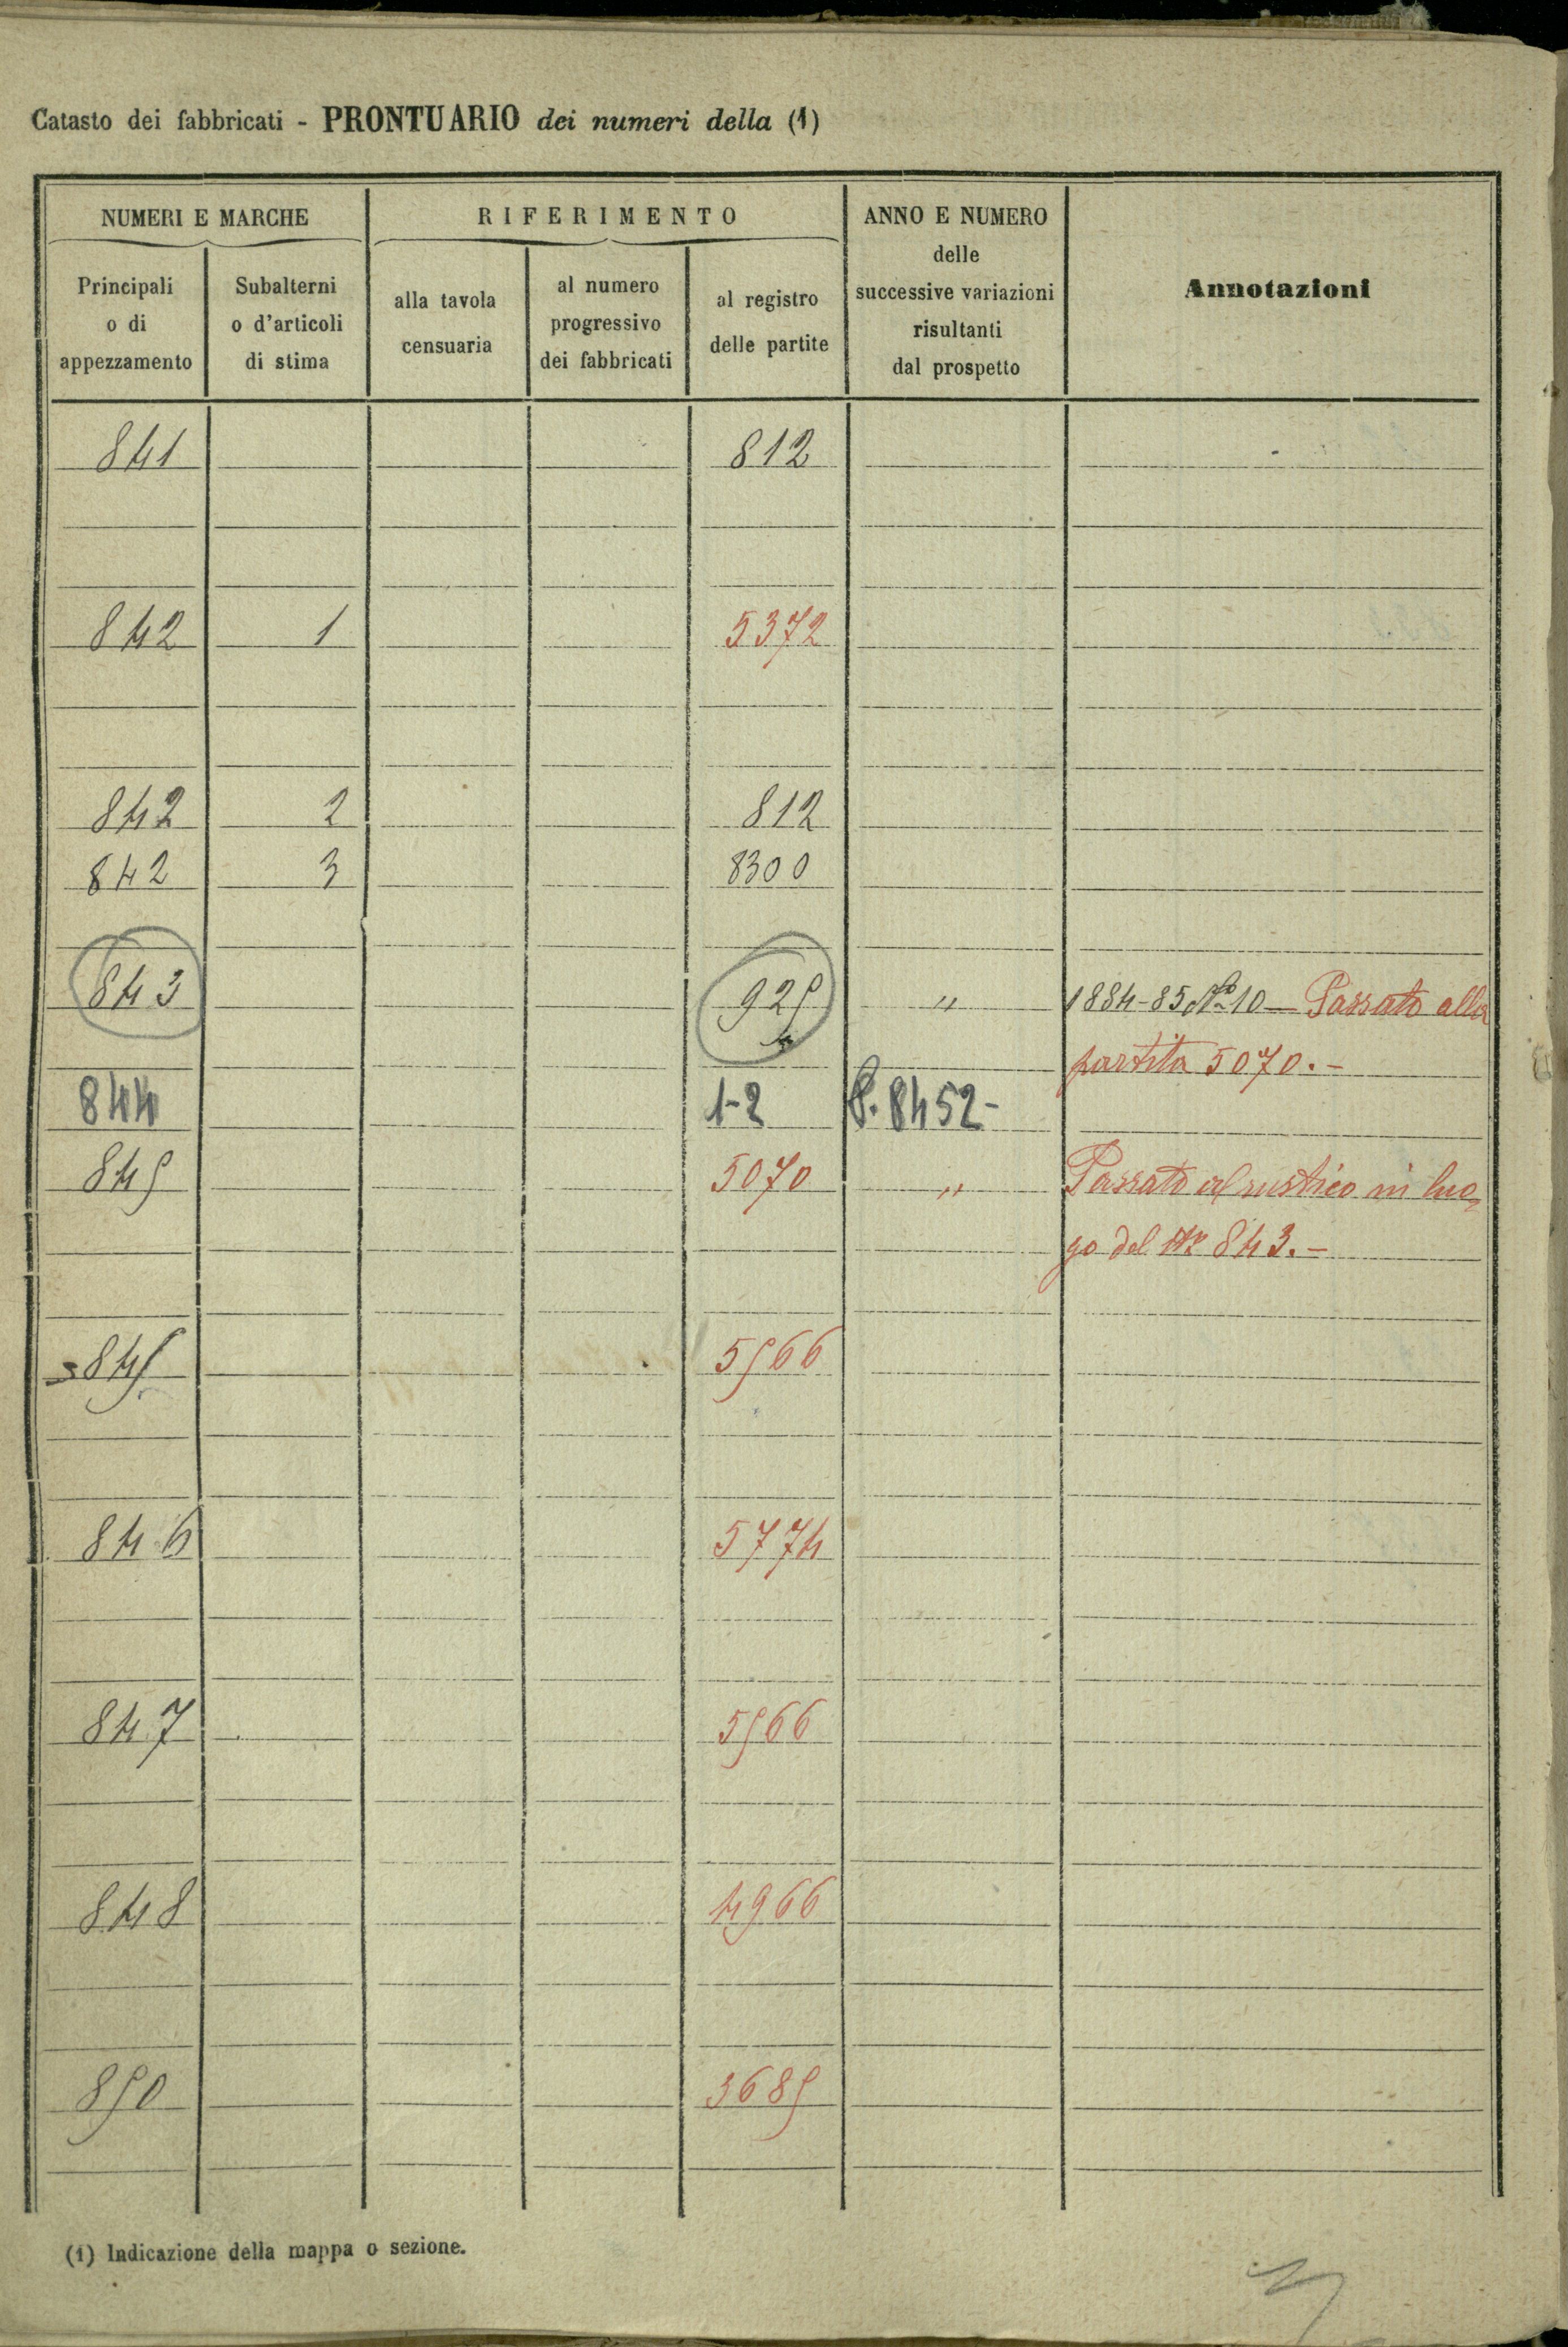 Catasto dei fabbricati - PRONTUARIO dei numeri della (1)
NUMERI E MARCHE
RIFERIMENTO
ANNO E NUMERO
delle
successive variazioni
risultanti
dal prospetto
Annotazioni
Principali
o di
appezzamento
Subalterni
o d'articoli
di stima
alla tavola
censuaria
al numero
progressivo
dei fabbricati
al registro
delle partite
841 812
842 1 5372
842 2 812
842 3 8300
843 925 " 1884-85 No 10 — Passato alla
partita 5070. -
844 1-2 P. 8452-
845 5070 " Passato al rustico in luo=
go del No 843. -
845 5566
846 5774
847 5566
848 4966
850 3685
(1) Indicazione della mappa o sezione.